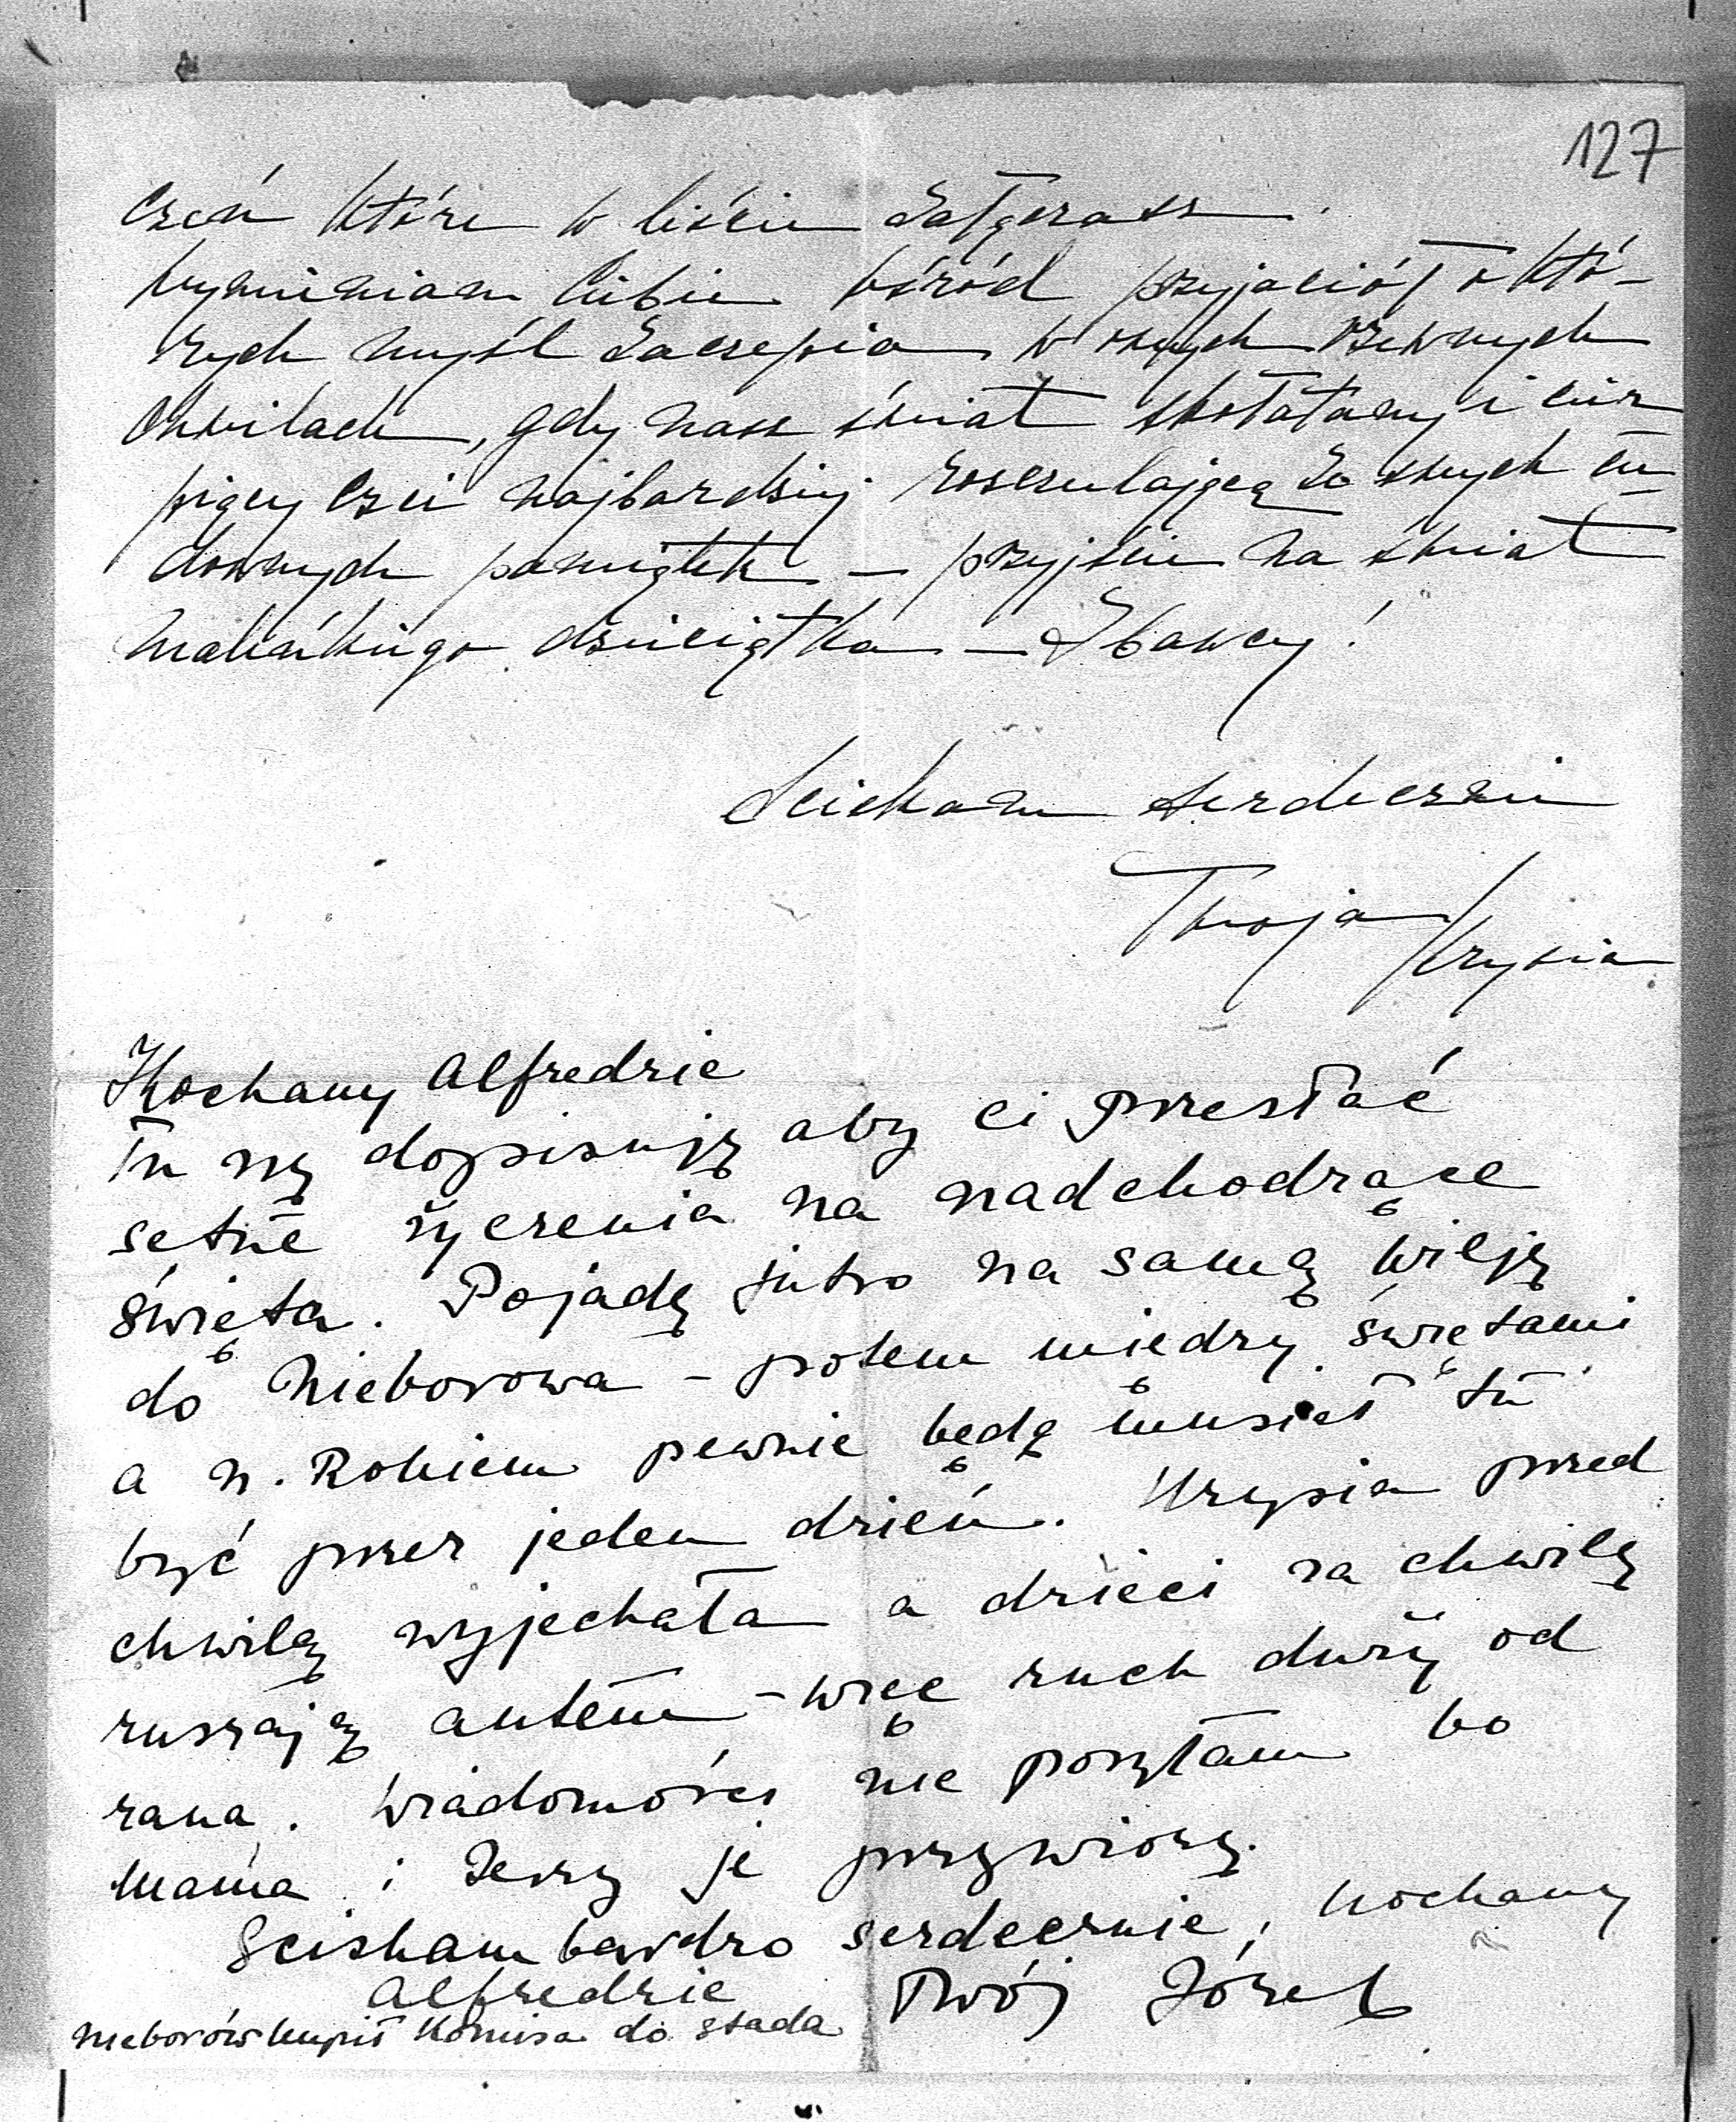 127
czeń które w liście załączasz.
Wymieniam Ciebie wśród przyjaciół o któ-
rych myśl zaczepia w owych rzewnych
chwilach, gdy nasz świat skołatany i cier
piący czci najbardziej rozczulającą ze swych cu-
downych pamiątek — przyjście na świat
maleńkiego dzieciątka — Zbawcy!
Ściskam serdecznie
Twoja Krysia
Kochany Alfredzie
Tu się dopisuję aby ci przesłać
setne życzenia na nadchodzące
święta. Pojadę jutro na samą wilję
do Nieborowa – potem miedzy świętami
a n. Rokiem pewnie będę musiał tu
być przez jeden dzień. Krysia przed
chwilą wyjechała a dzieci za chwilę
ruszają autem – więc ruch duży od
rana. Wiadomości nie posyłam bo
Mama i Jerzy je przywiozą.
Ściskam bardzo serdecznie, kochany
Alfredzie Twój Józef
Nieborów kupił Komisa do stada